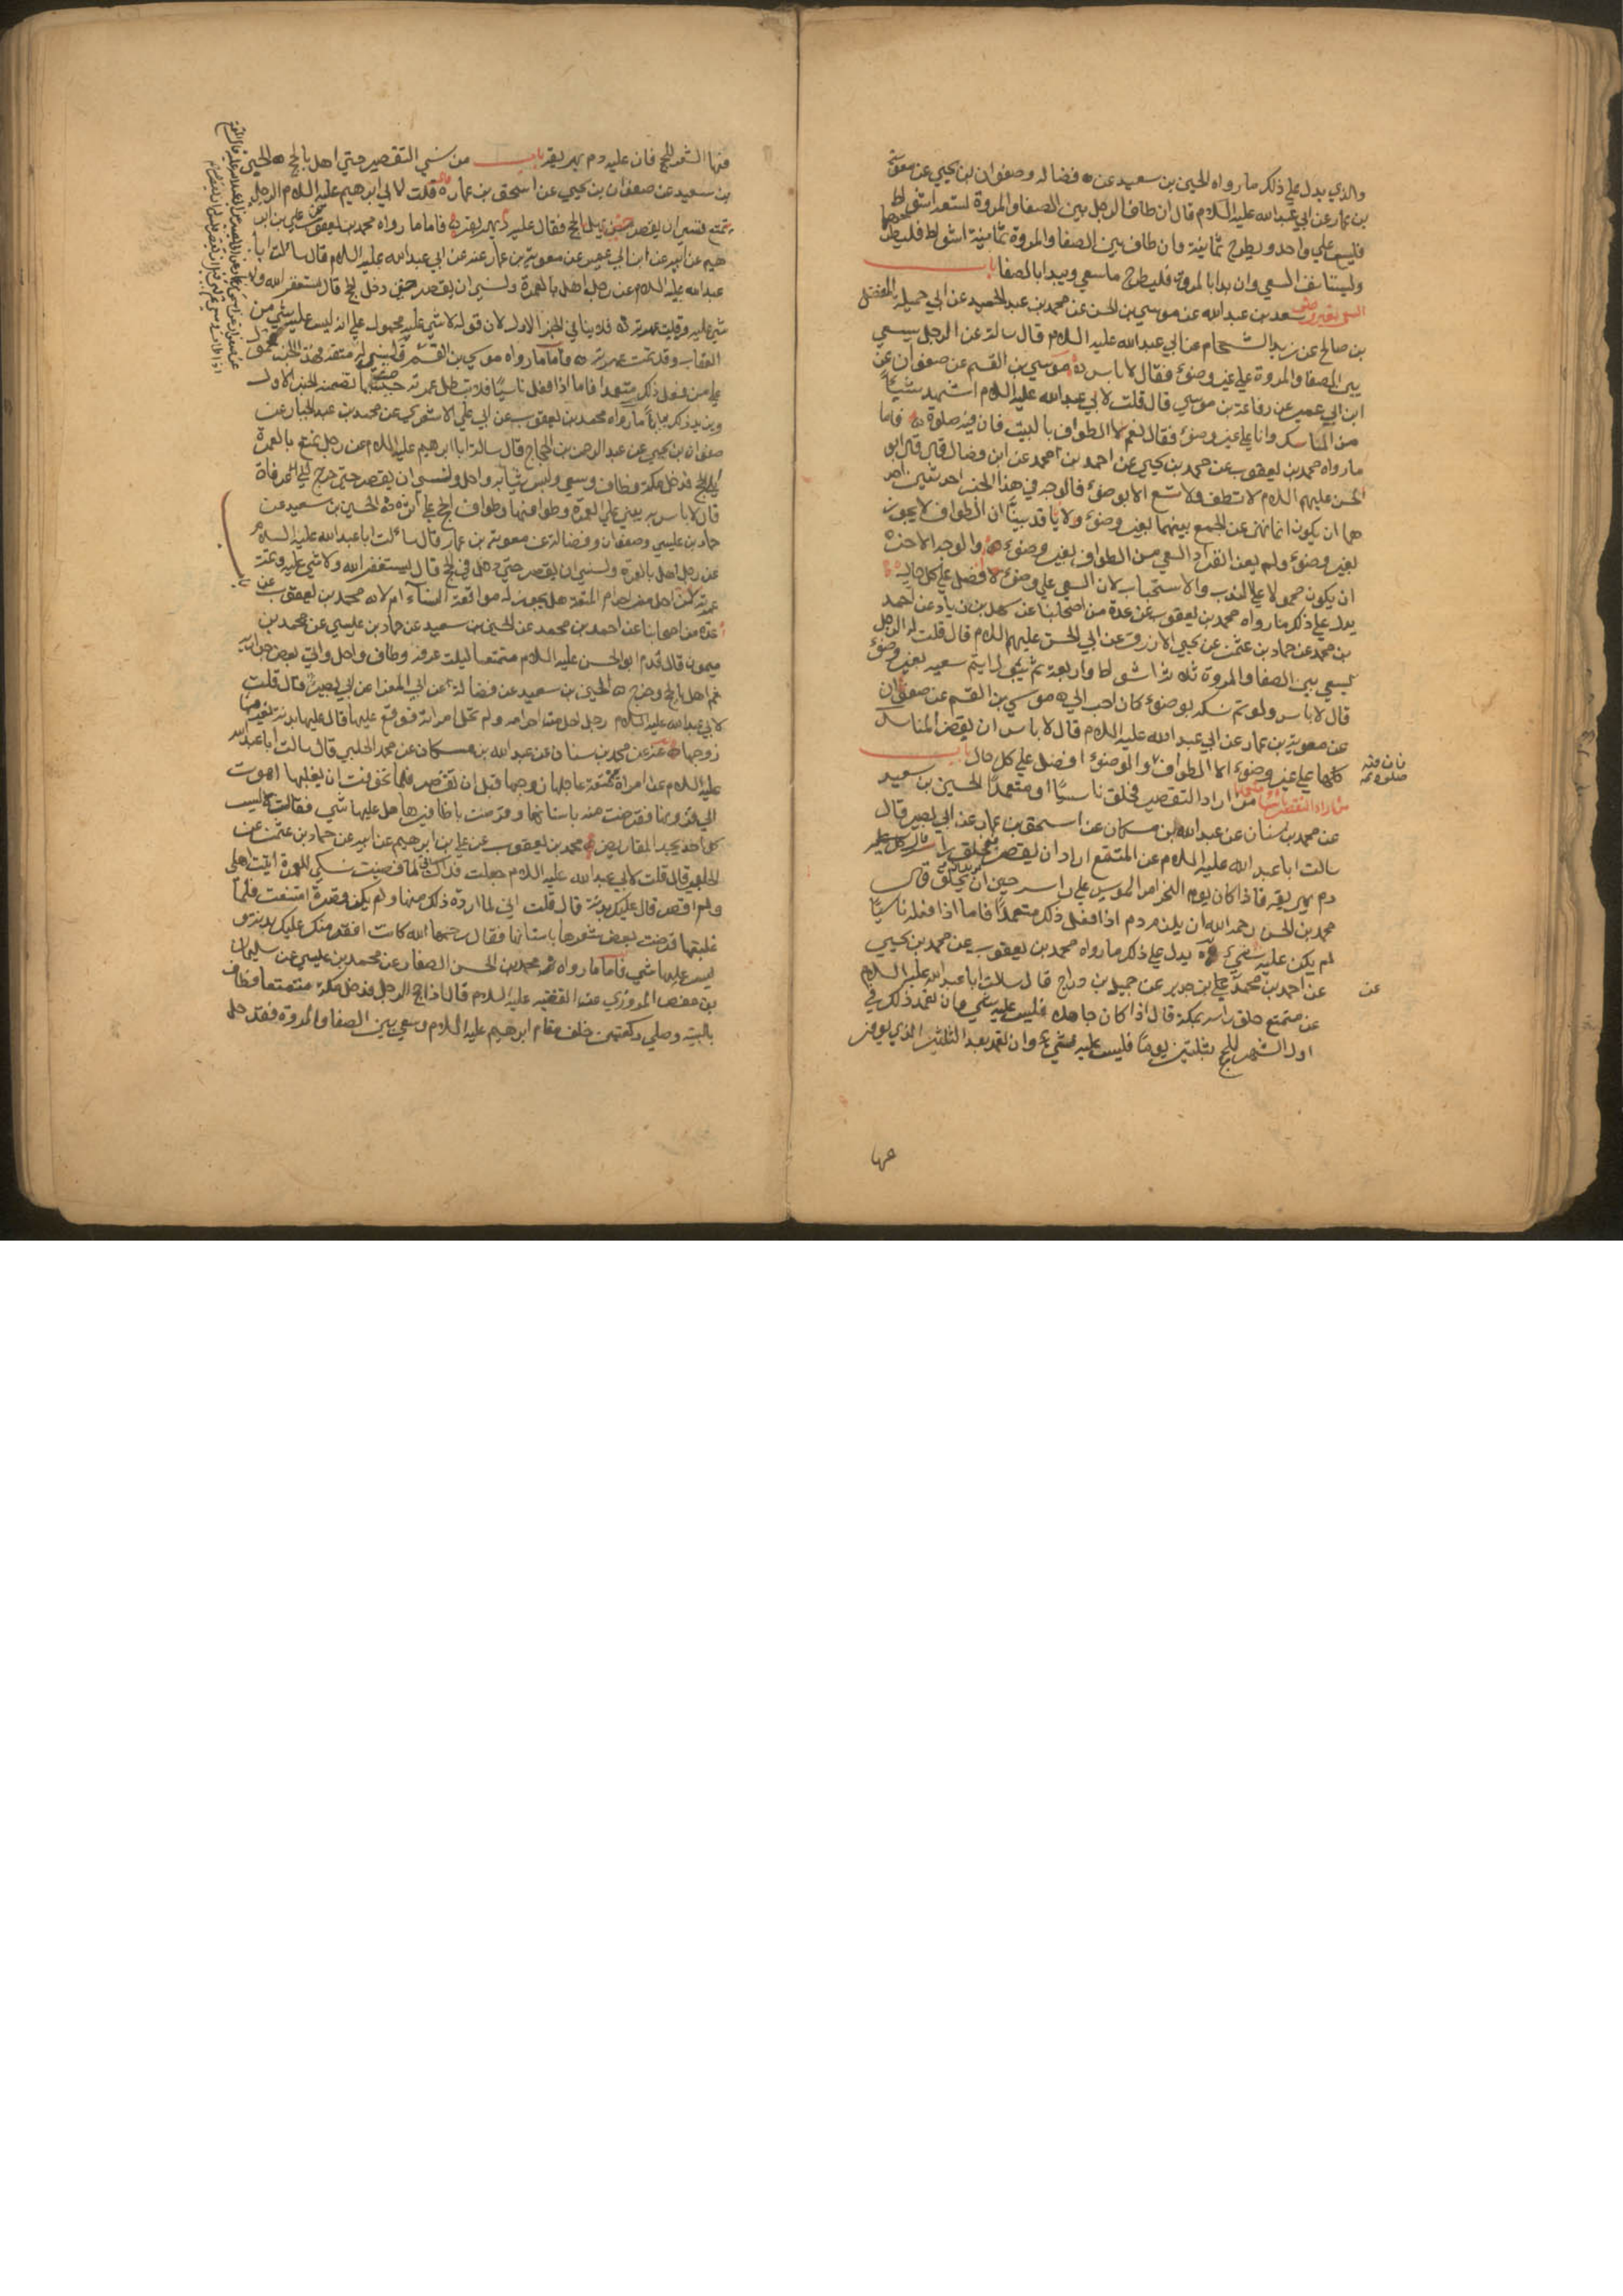 والذي يدل على ذلك ما رواه الحسين بن سعيد عن فضالة وصفوان بن يحيى عن معوية
بن عمار عن ابي عبدالله عليه السلام قال ان طاف الرجل بين الصفا والمروة تسعة اشواط
فليسع على واحد ويطرح ثمانية وان طاف بين الصفا والمروة ثمانية اشواط فليطرحها
وليستأنف السعي وان بدا بالمروة فليطرح ما سعي ويبدا بالصفا باب
السعي بغير وضوء سعد بن عبد الله عن موسى بن الحسن عن محمد بن عبد الحميد عن ابي جميلة المفضل
بن صالح عن زيد الشحام عن ابي عبدالله عليه السلام قال سالته عن الرجل يسعي
بين الصفا والمروة على غير وضوء فقال لا باس موسى بن القسم عن صفوان عن
ابن ابي عمير عن رفاعة بن موسى قال قلت لابي عبدالله عليه السلام اشهد شيئاً
من المناسك وانا على غير وضوء فقال نعم الا الطواف بالبيت فان فيه صلوة فاما
ما رواه محمد بن يعقوب عن محمد بن يحيى عن احمد بن محمد عن ابن فضال قال قال ابو
الحسن عليه السلام لا تطف ولا تسع الا بوضوء فالوجه في هذا الخبر احد شيئين احد
هما ان يكون انما نهى عن الجمع بينهما بغير وضوء ولانا قد بينا ان الطواف لا يجوز
بغير وضوء ولم يعن انفراد السعي من الطواف بغير وضوء والوجه الاخر
ان يكون محمولا على الندب والاستحباب لان السعي على وضوء افضل على كل حال
يدل على ذلك ما رواه محمد بن يعقوب عن عدة من اصحابنا عن سهل بن زياد عن احمد
بن محمد عن حماد بن عثمن عن يحيى الازرق عن ابي الحسن عليه السلام قال قلت له الرجل
يسعي بين الصفا والمروة ثلاثة اشواط او اربعة ثم يبول ايتم سعيه بغير وضوء
قال لا باس ولو تم نسكه بوضوء كان احب الي موسى بن القسم عن صفوان
عن معوية بن عمار عن ابي عبد الله عليه السلام قال لا باس ان يقضي المناسك
كلها على غير وضوء الا الطواف والوضوء افضل على كل حال باب
فان فيه
صلوة
من اراد التقصير فحلق ناسيًا او متعمدًا الحسين بن سعيد
عن محمد بن سنان عن عبد الله بن مسكان عن اسحق بن عمار عن ابي بصير قال
سالت ابا عبد الله عليه السلام عن المتمتع اراد ان يقصر فحلق راسه قال عليه
دم يهريقه فاذا كان يوم النحر امر الموسى على راسه حين يريد ان يحلق قال
محمد بن الحسن رحمه الله ان يلزمه دم اذا فعل ذلك متعمدًا فاما اذا فعله ناسيًا
لم يكن عليه شيء يدل على ذلك ما رواه محمد بن يعقوب عن محمد بن يحيى
عن احمد بن محمد عن علي بن حديد عن جميل بن دراج قال سالت ابا عبدالله عليه السلام
عن متمتع حلق راسه بمكة قال اذا كان جاهلا فليس عليه شيء وان تعمد ذلك في
اول الشهر للحج بثلثين يوما فليس عليه شيء وان تعمد بعد الثلثين الذي يوفر
فيها
فيها الشعر للحج فان عليه دم يهريقه باب من نسي التقصير حتى اهل بالحج الحسين
بن سعيد عن صفوان بن يحيى عن اسحق بن عمار قال قلت لابي ابرهيم عليه السلام الرجل
يتمتع فنسي ان يقصر حتى يهل بالحج فقال عليه دم يهريقه فاما ما رواه محمد بن يعقوب عن علي بن ابر
هيم عن ابيه عن ابن ابي عمير عن معوية بن عمار عن ابي عبدالله عليه السلام قال سالت ابا
عبدالله عليه السلام عن رجل اهل بالعمرة ونسي ان يقصر حتى دخل في الحج قال يستغفر الله ولا
شيء عليه وتمت عمرته فلا ينافي الخبر الاول لان قوله لا شيء عليه محمول على انه ليس عليه شيء من
العقاب وقد تمت عمرته فاما ما رواه موسى بن القسم
على من فعل ذلك متعمدا فاما اذا فعل ناسيًا فلا تبطل عمرته حسب ما تضمنه الخبر الاول
ويزيد ذلك بيانًا ما رواه محمد بن يعقوب عن ابي علي الاشعري عن محمد بن عبد الجبار عن
صفوان بن يحيى عن عبد الرحمن بن الحجاج قال سالت ابا ابرهيم عليه السلام عن رجل تمتع بالعمرة
الى الحج فدخل مكة فطاف وسعي ولبس ثيابه واحل ونسي ان يقصر حتى خرج الى عرفات
قال لا باس به يبني على العمرة وطوافها وطواف الحج على اثره الحسين بن سعيد عن
حماد بن عيسى وصفوان وفضالة عن معوية بن عمار قال سالت ابا عبدالله عليه السلام
عن رجل اهل بالعمرة ونسي ان يقصر حتى دخل في الحج قال يستغفر الله ولا شيء عليه وتمت
عمرته باب من احل من احرام المتعة هل يجوز له مواقعة النساء ام لا محمد بن يعقوب عن
عدة من اصحابنا عن احمد بن محمد عن الحسين بن سعيد عن حماد بن عيسى عن محمد بن
ميمون قال قدم ابو الحسن عليه السلام متمتعا ليلة عرفة وطاف واحل واتى بعض جواريه
ثم اهل بالحج وخرج الحسين بن سعيد عن فضالة عن ابي المغرا عن ابي بصير قال قلت
لابي عبدالله عليه السلام رجل احل من احرامه ولم تحل امراته فوقع عليها قال عليها بدنة يغرمها
زوجها عنه عن محمد بن سنان عن عبد الله بن مسكان عن محمد الحلبي قال سالت ابا عبدالله
عليه السلام عن امراة متمتعة عاجلها زوجها قبل ان تقصر فلما تخوفت ان يغلبها اهوت
الى قرونها فقرضت منها باسنانها وقرضت باظافيرها هل عليها شيء فقال لا ليس
كل احد يجد المقاريض محمد بن يعقوب عن علي بن ابرهيم عن ابيه عن حماد بن عثمن عن
الحلبي قال قلت لابي عبدالله عليه السلام جعلت فداك اني لما قضيت نسكي للعمرة اتيت اهلي
ولم اقصر قال عليك بدنة قال قلت اني لما اردت ذلك منها ولم يكن قصرت امتنعت فلما
غلبتها قرضت بعض شعرها باسنانها فقال رحمها الله كانت افقه منك عليك بدنة و
ليس عليها شيء فاما ما رواه محمد بن الحسن الصفار عن محمد بن عيسى عن سليمان
بن حفص المروزي عن الفقيه عليه السلام قال اذا حج الرجل فدخل مكة متمتعا فطاف
بالبيت وصلي ركعتين خلف مقام ابرهيم عليه السلام وسعي بين الصفا والمروة فقد حل